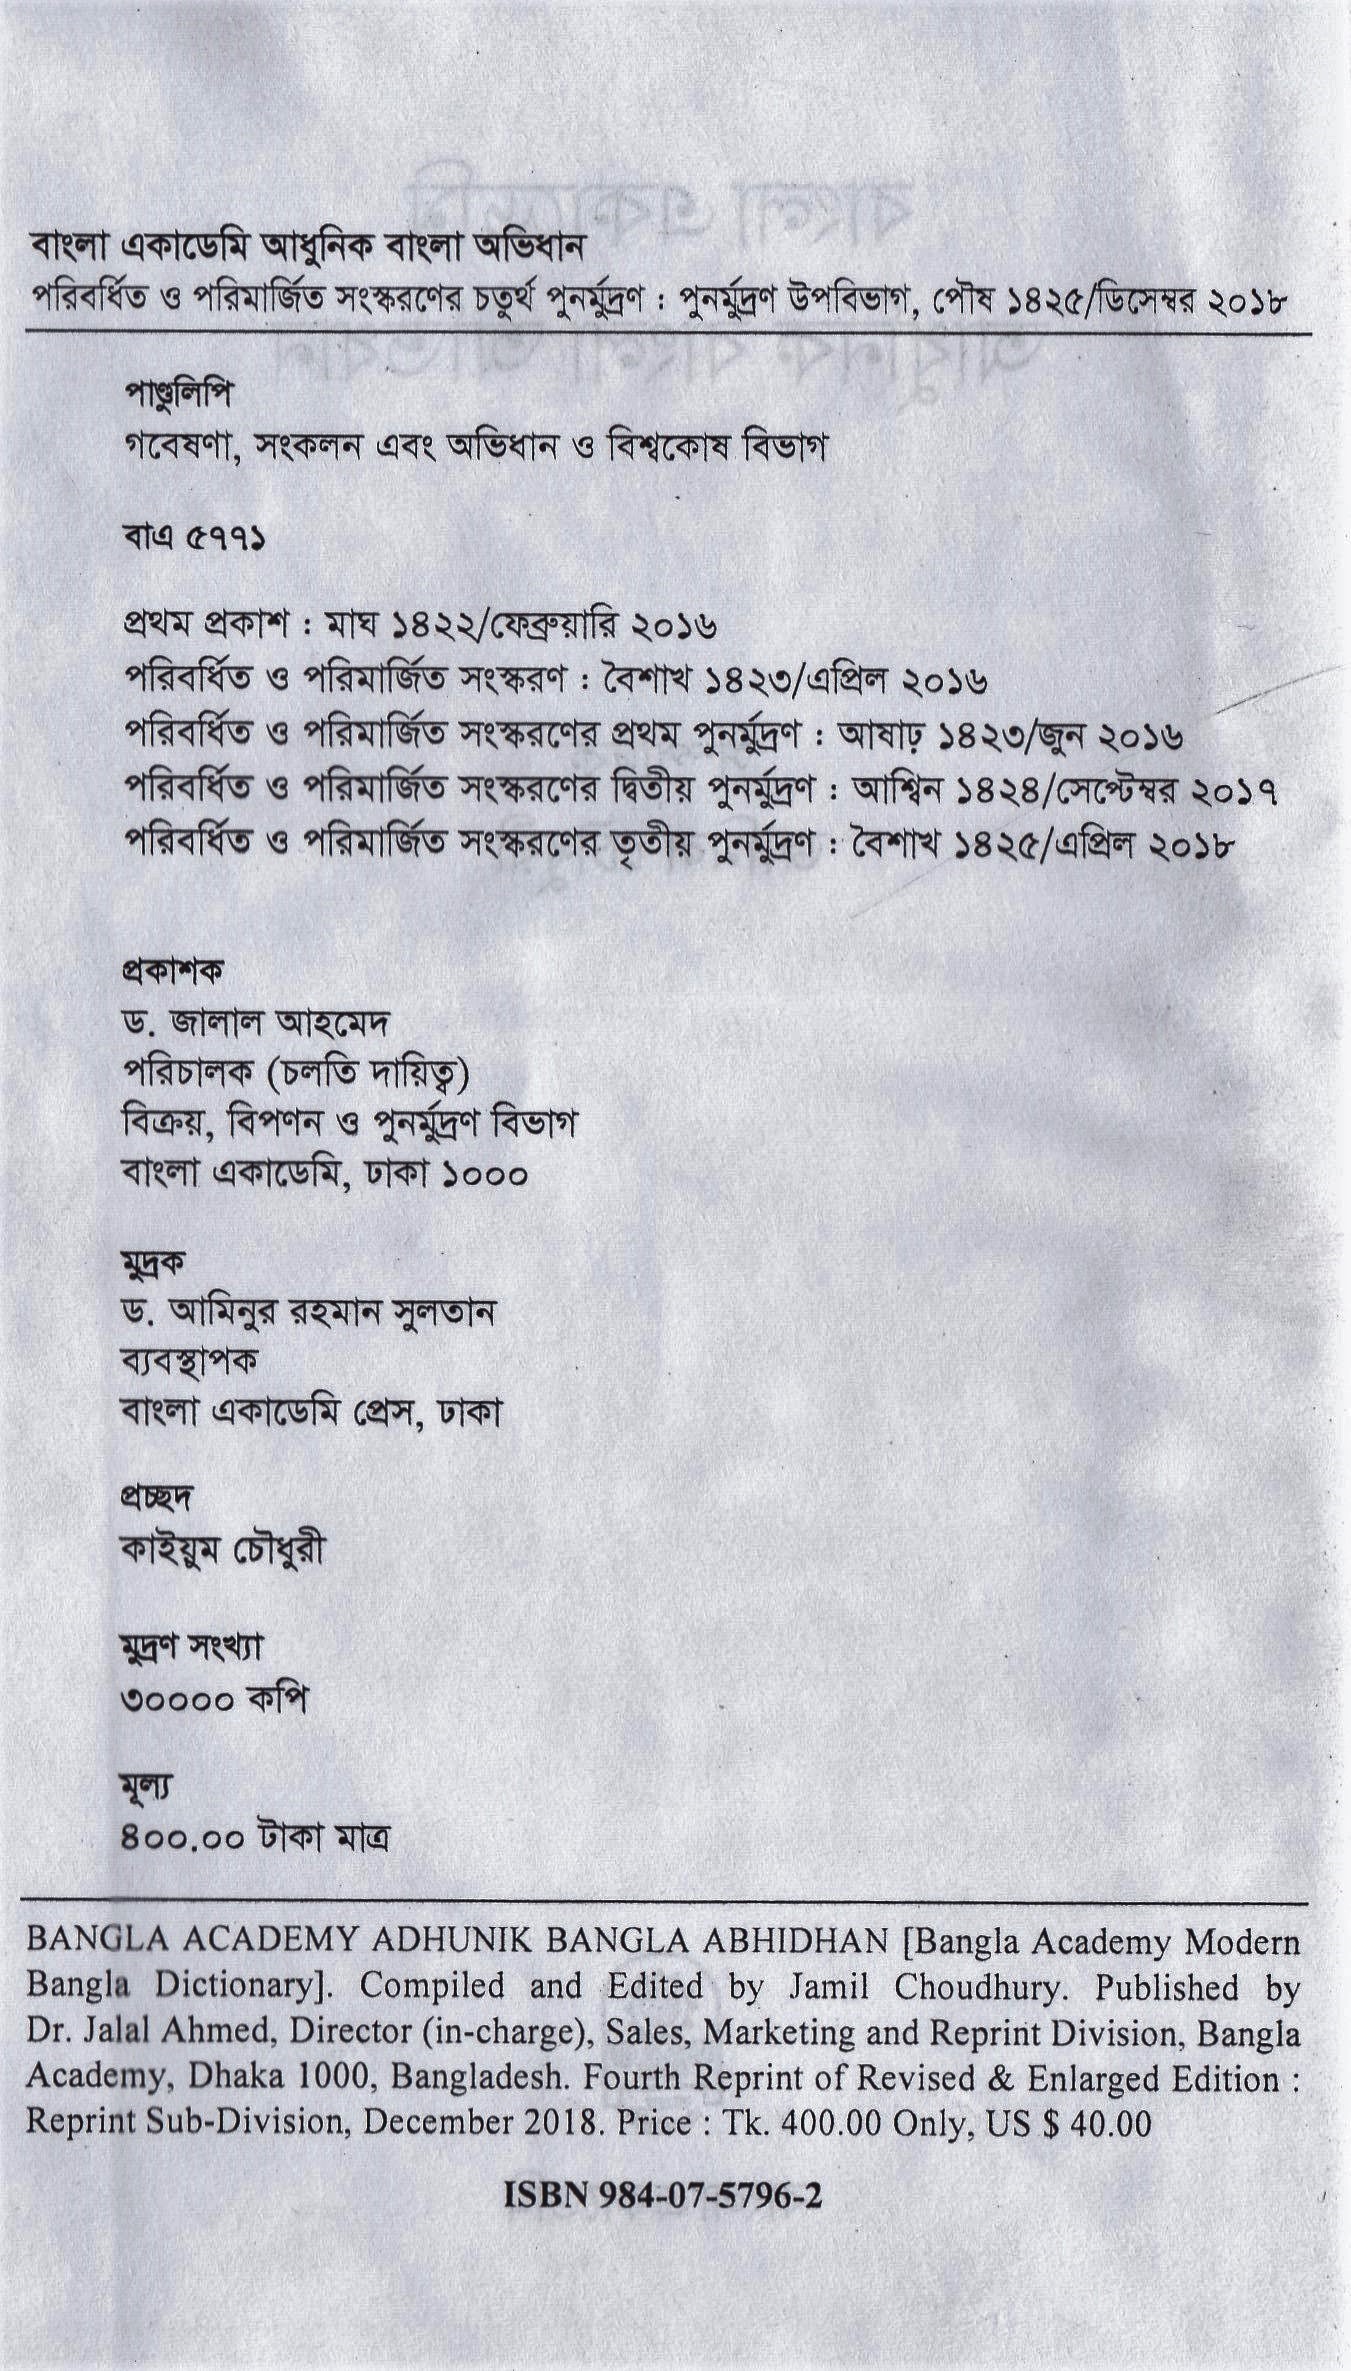 বাংলা একাডেমি আধুনিক বাংলা অভিধান
পরিবর্ধিত ও পরিমার্জিত সংস্করণের চতুর্থ পুনর্মুদ্রণ : পুনর্মুদ্রণ উপবিভাগ, পৌষ ১৪২৫/ডিসেম্বর ২০১৮
পাণ্ডুলিপি
গবেষণা, সংকলন এবং অভিধান ও বিশ্বকোষ বিভাগ
বাএ ৫৭৭১
প্রথম প্রকাশ : মাঘ ১৪২২/ফেব্রুয়ারি ২০১৬
পরিবর্ধিত ও পরিমার্জিত সংস্করণ : বৈশাখ ১৪২৩/এপ্রিল ২০১৬
পরিবর্ধিত ও পরিমার্জিত সংস্করণের প্রথম পুনর্মুদ্রণ : আষাঢ় ১৪২৩/জুন ২০১৬
পরিবর্ধিত ও পরিমার্জিত সংস্করণের দ্বিতীয় পুনর্মুদ্রণ : আশ্বিন ১৪২৪/সেপ্টেম্বর ২০১৭
পরিবর্ধিত ও পরিমার্জিত সংস্করণের তৃতীয় পুনর্মুদ্রণ : বৈশাখ ১৪২৫/এপ্রিল ২০১৮
প্রকাশক
ড. জালাল আহমেদ
পরিচালক (চলতি দায়িত্ব)
বিক্রয়, বিপণন ও পুনর্মুদ্রণ বিভাগ
বাংলা একাডেমি, ঢাকা ১০০০
মুদ্রক
ড. আমিনুর রহমান সুলতান
ব্যবস্থাপক
বাংলা একাডেমি প্রেস, ঢাকা
প্রচ্ছদ
কাইয়ুম চৌধুরী
মুদ্রণ সংখ্যা
৩০০০০ কপি
মূল্য
৪০০.০০ টাকা মাত্র
BANGLA ACADEMY ADHUNIK BANGLA ABHIDHAN [Bangla Academy Modern
Bangla Dictionary]. Compiled and Edited by Jamil Choudhury. Published by
Dr. Jalal Ahmed, Director (in-charge), Sales, Marketing and Reprint Division, Bangla
Academy, Dhaka 1000, Bangladesh. Fourth Reprint of Revised & Enlarged Edition :
Reprint Sub-Division, December 2018. Price : Tk. 400.00 Only, US $ 40.00
ISBN 984-07-5796-2